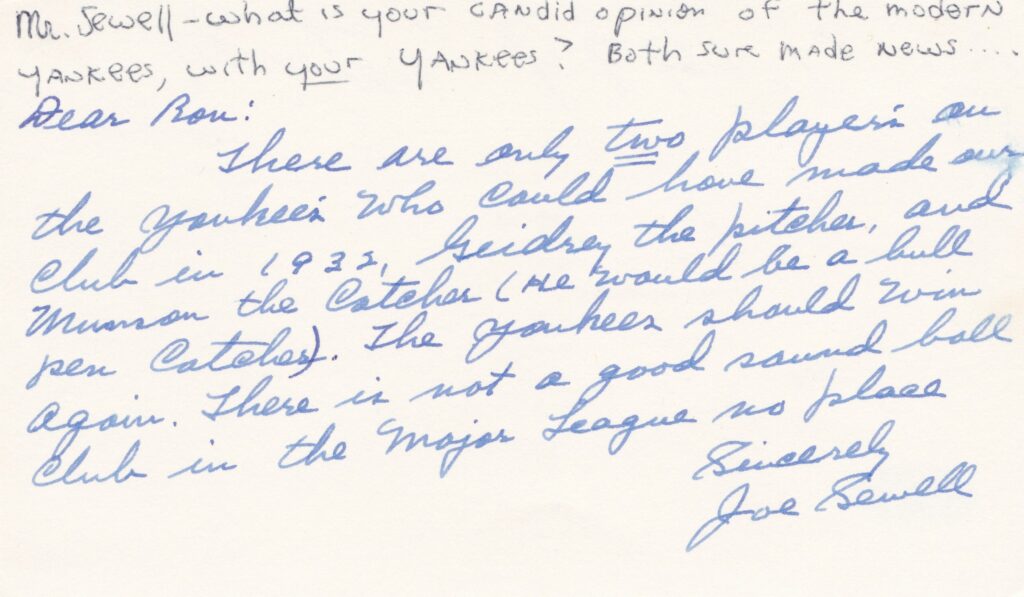 Mr. Sewell - what is your candid opinion of the modern
Yankees, with your Yankees? Both sure made news....
Dear Ron:
There are only two player's on
the Yankee's who could have made our
Club in 1932, Geidrey the pitcher, and
Munson the Catcher (He would be a bull
pen Catcher). The Yankees should win
again. There is not a good sound ball
Club in the Major League no place
Sincerely
Joe Sewell